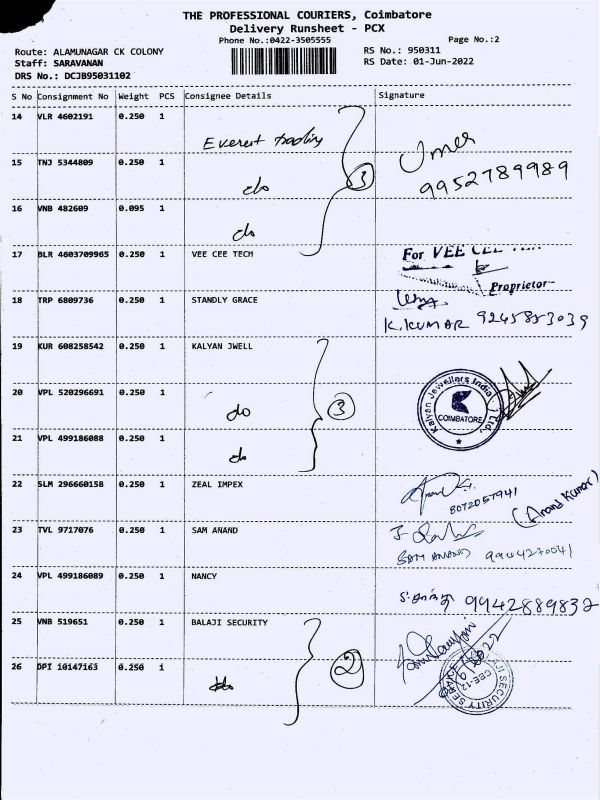 THE PROFESSIONAL COURIERS, Coimbatore
Delivery Runsheet - PCX
Phone No.:0422-3505555 Page No.:2
Route: ALAMUNAGAR CK COLONY RS No.: 950311
Staff: SARAVANAN RS Date: 01-Jun-2022
DRS No.: DCJB95031102
S No Consignment No Weight PCS Consignee Details Signature
14 VLR 4602191 0.250 1
Everest trading
Umer
15 TNJ 5344809 0.250 1
do 3 9952789989
16 VNB 482609 0.095 1
do
17 BLR 4603709965 0.250 1 VEE CEE TECH For VEE CEE
Proprietor
18 TRP 6809736 0.250 1 STANDLY GRACE
K.KUMAR 9245853039
19 KUR 608258542 0.250 1 KALYAN JWELL
20 VPL 520296691 0.250 1
do 3 Kalyan Jewellers India Ltd., COIMBATORE
21 VPL 499186088 0.250 1
do
22 SLM 296660158 0.250 1 ZEAL IMPEX
8072057941 (Anand Kumar)
23 TVL 9717076 0.250 1 SAM ANAND
SAM ANAND 9904270041
24 VPL 499186089 0.250 1 NANCY
9942889832
25 VNB 519651 0.250 1 BALAJI SECURITY
26 DPI 10147163 0.250 1 2
do SECURITY
CBE-12